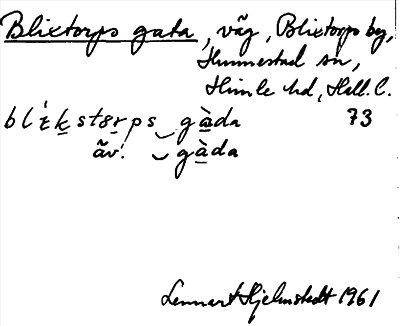 Blixtorps gata, väg, Blixtorps by,
Hunnestad sn,
Himle hd, Hall. l.
blɩ́ḵstɞr̲ps‿gàda 73
äv. ‿gàda
Lennart Hjelmstedt 1961